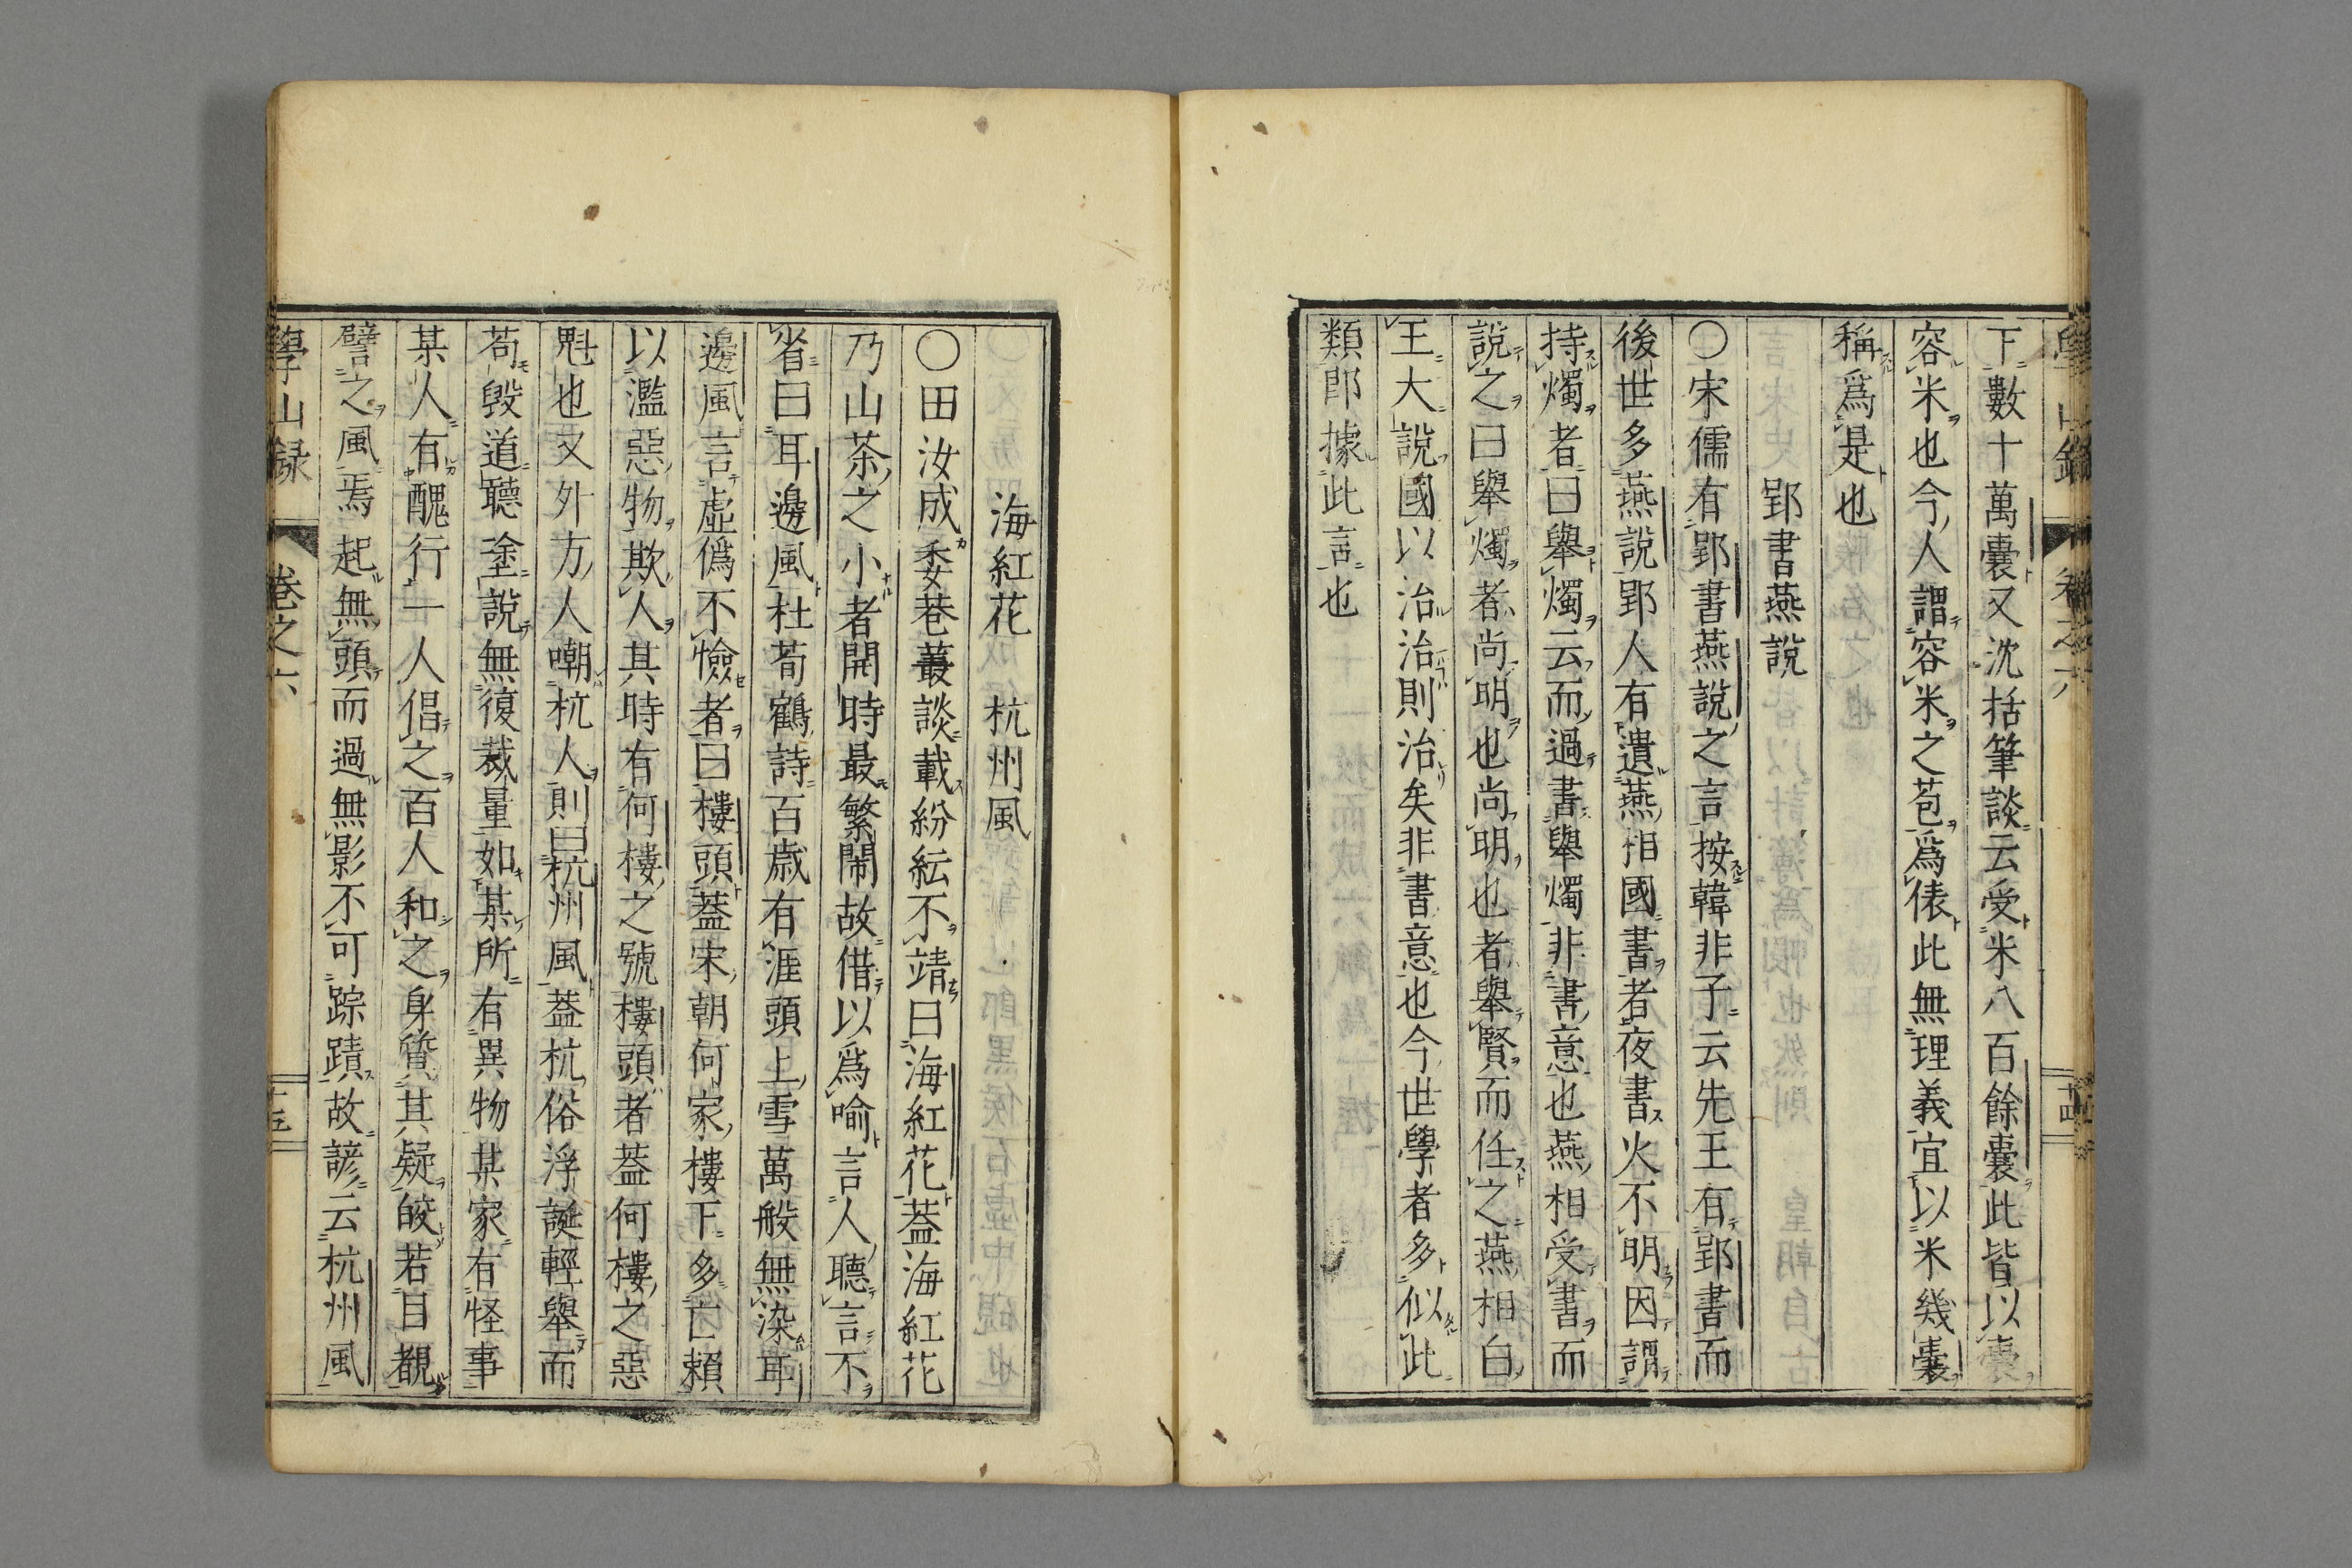 學山錄 卷之六 十四
下數十萬囊又沈括筆談云受米八百餘囊此皆以囊
容米也今人謂容米之苞爲俵此無理義宜以米幾囊
稱爲是也
郢書燕說
〇宋儒有郢書燕說之言按韓非子云先王有郢書而
後世多燕說郢人有遺燕相國書者夜書火不明因謂
持燭者曰舉燭云而過書舉燭非書意也燕相受書而
說之曰舉燭者尚明也尚明也者舉賢而任之燕相白
王大說國以治治則治矣非書意也今世學者多似此
類卽據此言也
海紅花 杭州風
〇田汝成委巷蕞談載紛紜不靖曰海紅花葢海紅花
乃山茶之小者開時最繁閙故借以爲喻言人聽言不
省曰耳邊風杜荀鶴詩百歲有涯頭上雪萬般無染耳
邊風言虛僞不憸者曰樓頭葢宋朝何家樓下多亡賴
以濫惡物欺人其時有何樓之號樓頭者葢何樓之惡
魁也又外方人嘲杭人則曰杭州風葢杭俗浮誕輕舉而
苟毀道聽塗說無復裁量如某所有異物某家有怪事
某人有醜行一人倡之百人和之身質其疑皎若目覩
譬之風焉起無頭而過無影不可踪蹟故諺云杭州風
學山録 卷之六 十五